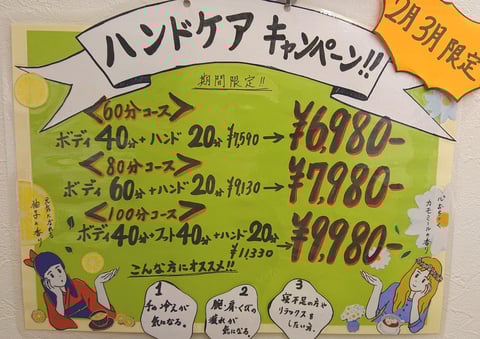 ハンドケア キャンペーン!!
2月3月限定
期間限定!!
<60分コース>
ボディ40分+ハンド20分 ¥7,590→¥6,980-
<80分コース>
ボディ60分+ハンド20分 ¥9,130→¥7,980-
<100分コース>
ボディ40分+フット40分+ハンド20分
¥11,330→¥9,980-
元気になれる
柚子の香り
心おちつく
カモミールの香り
こんな方にオススメ!!
1
手の冷えが
気になる。
2
腕・肩・くびの
疲れが
気になる。
3
寝不足の方や
リラックスを
したい方。